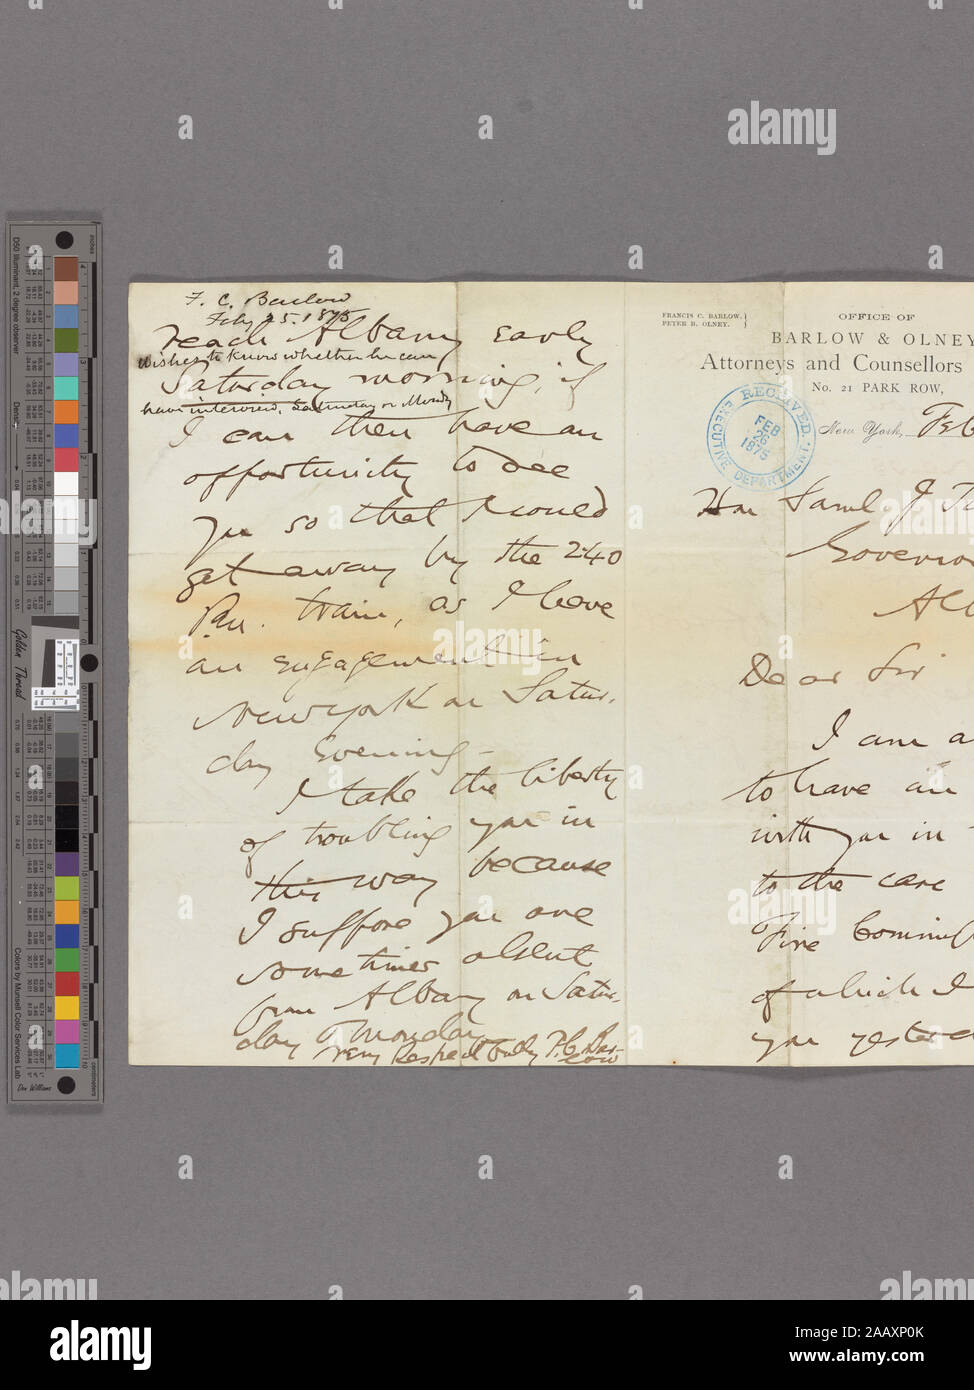 F. C. Barlow
Feby 25. 1875
reach Albany early
Wishes to know whether he can
Saturday morning, if
have interview, Saturday or Monday
I can then have an
opportunity to see
you so that I could
get away by the 2.40
P.m. train, as I have
an engagement in
New York on Satur-
day evening -
I take the liberty
of troubling you in
this way because
I suppose you are
sometimes absent
from Albany on Satur-
day & Monday
Very Respectfully F. C. Bar-
low
FRANCIS C. BARLOW.
PETER B. OLNEY.
OFFICE OF
BARLOW & OLNEY
Attorneys and Counsellors
No. 21 PARK ROW,
RECEIVED.
FEB
26
1875
EXECUTIVE DEPARTMENT.
New York, Feb
Hon Saml J Ti
Governor
Alb
Dear Sir
I am a
to have an
with you in
to the care
Fire Commis
of which I
you yesterd
D50 Illuminant, 2 degree observer
Density
Golden Thread
Colors by Munsell Color Services Lab
Don Williams
inches
centimeters
alamy
a
alamy
Image ID: 2AAXP0K
www.alamy.com